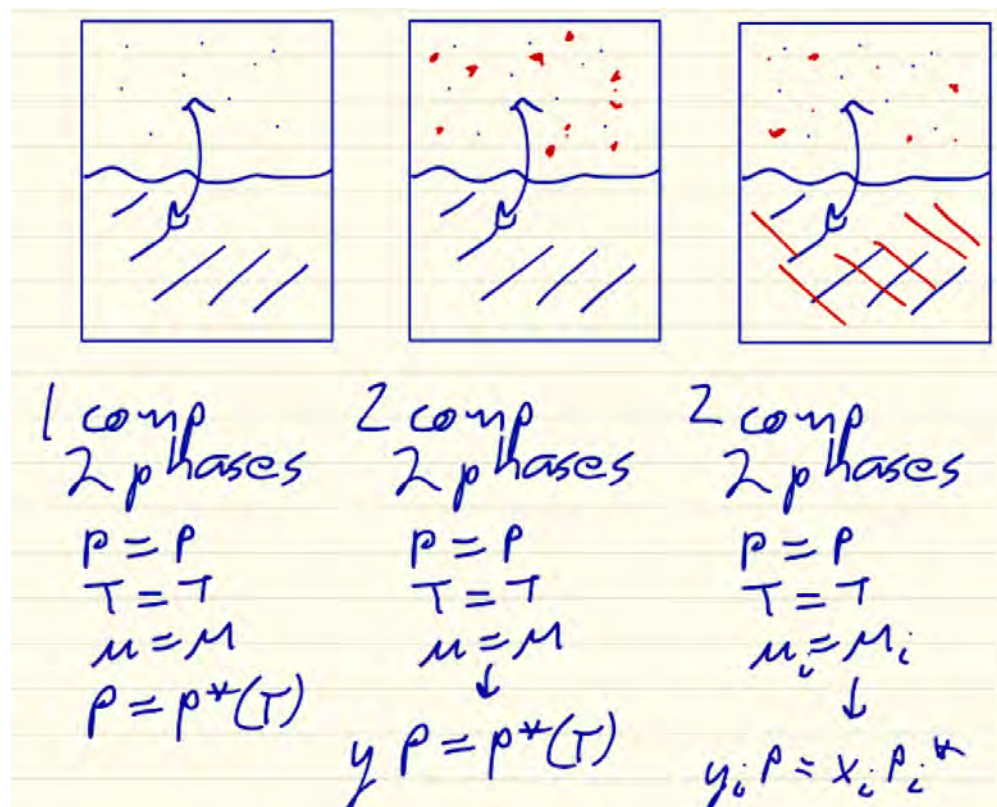 1 comp
2 phases
P = P
T = T
μ = μ
P = P*(T)
2 comp
2 phases
P = P
T = T
μ = μ
↓
y P = P*(T)
2 comp
2 phases
P = P
T = T
μᵢ = μᵢ
↓
yᵢ P = xᵢ Pᵢ*